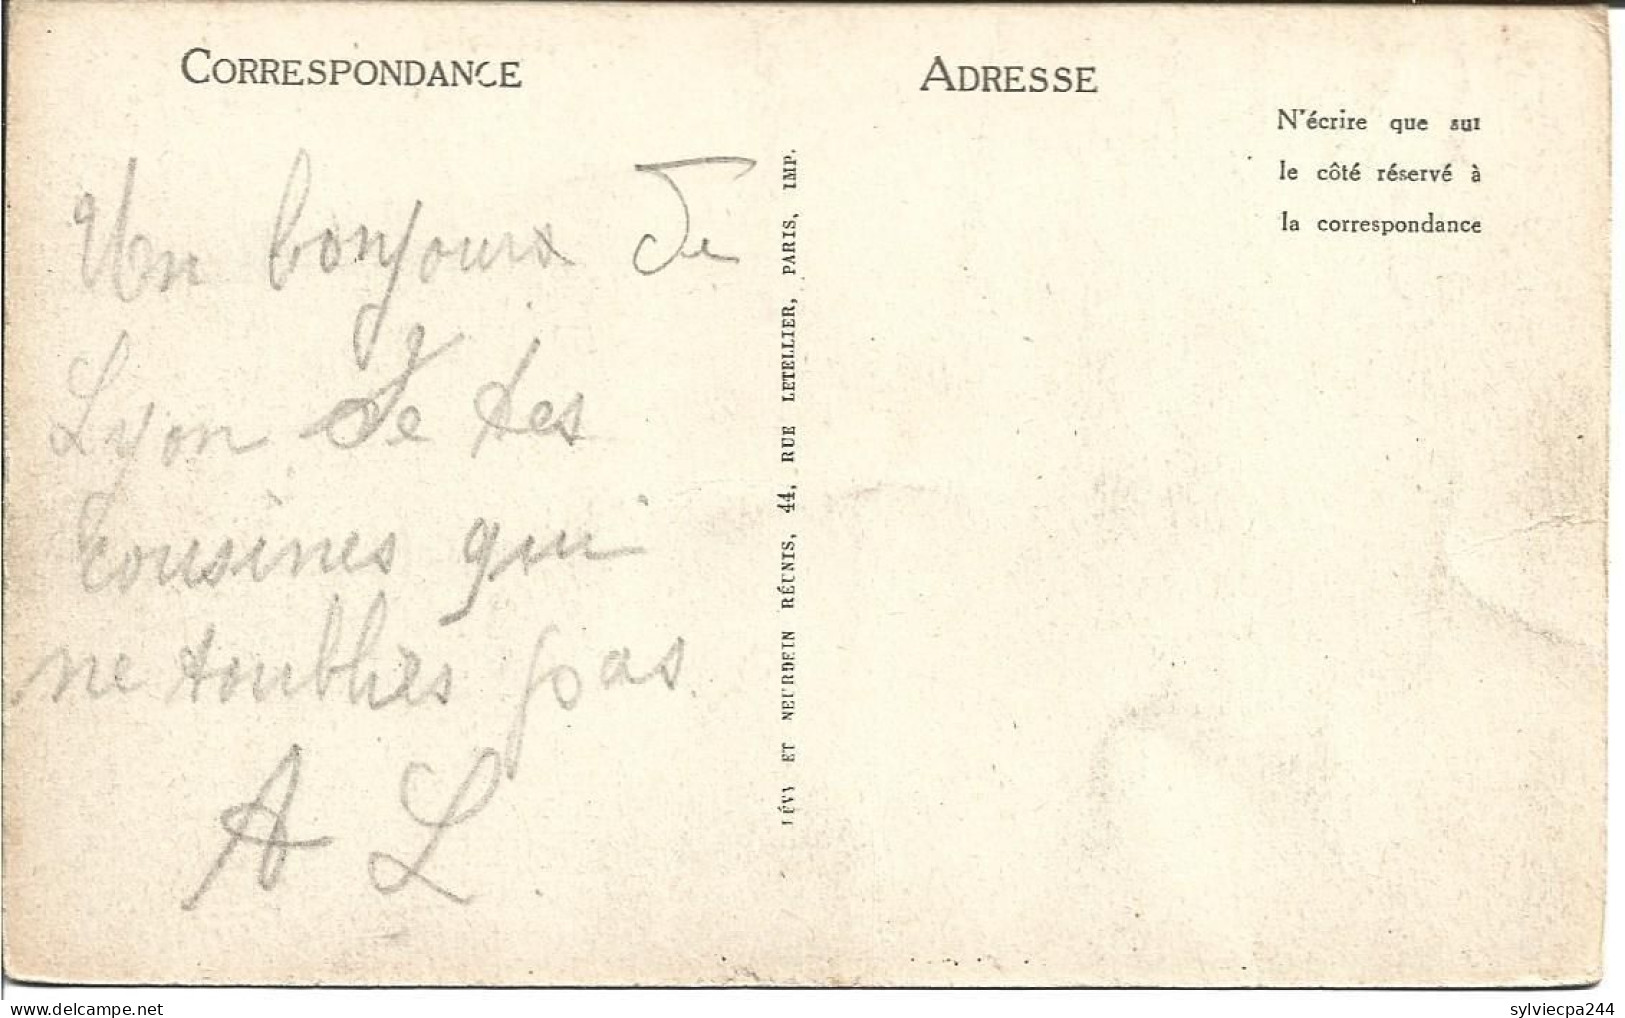 CORRESPONDANCE
Un bonjours de
Lyon de tes
cousines qui
ne toublies pas
A L.
LÉVY ET NEURDEIN RÉUNIS, 44, RUE LETELLIER, PARIS, IMP.
ADRESSE
N'écrire que sur
le côté réservé à
la correspondance
sylviecpa244